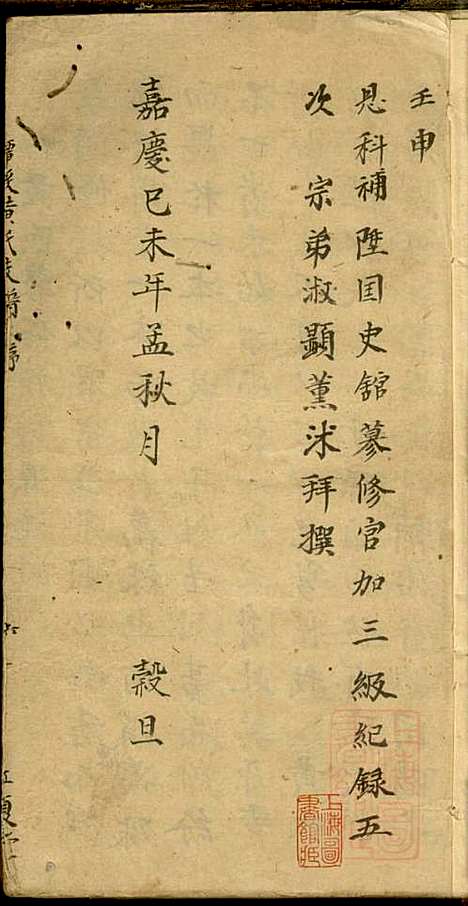 壬申
恩科補陞国史舘蓦修官加三級紀録五
次 宗弟淑顯薰沐拜撰
嘉慶已未年孟秋月 榖旦
上海圖書館藏